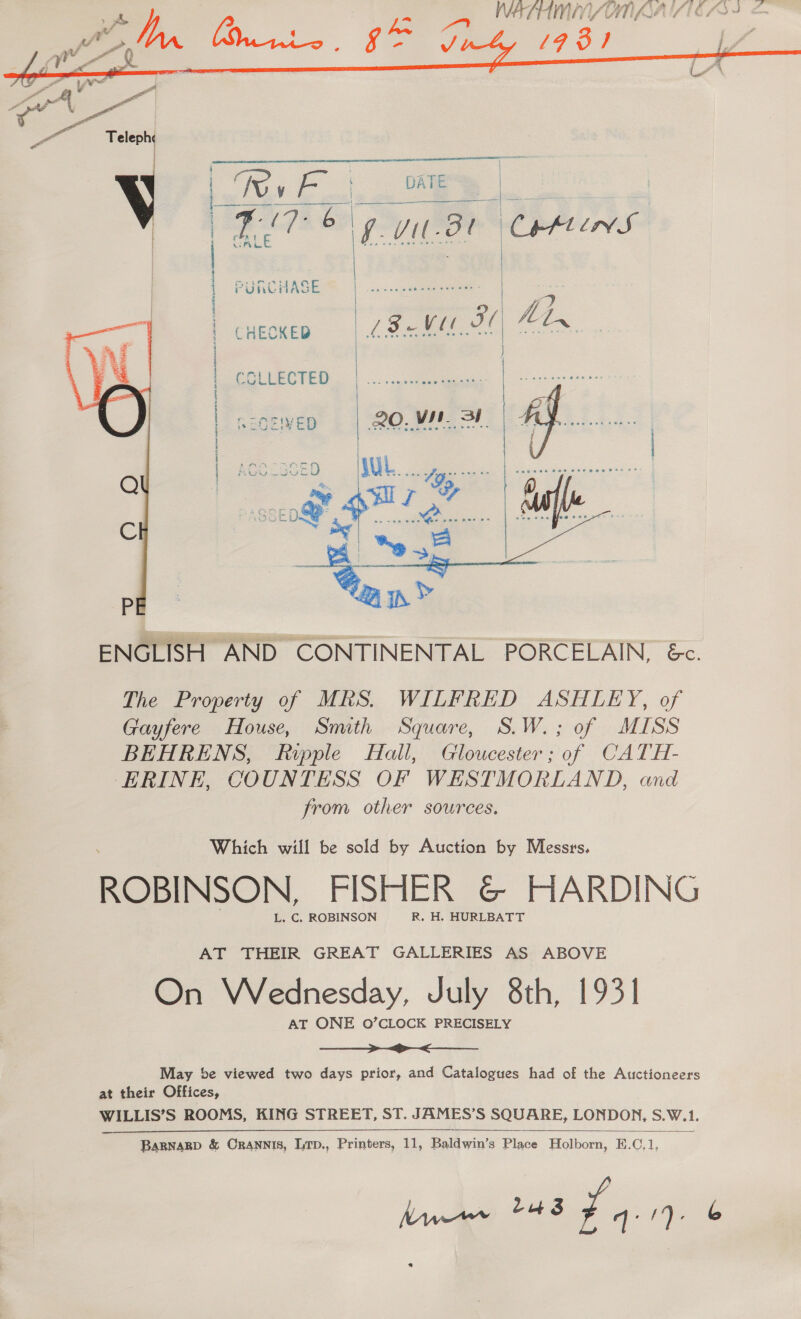 8th July 1931
Teleph
R v F DATE
8.VII.31
PURCHASE
CHECKED 13.VII.31
COLLECTED
RECEIVED 20.VII.31
JUL 1931
PASSED
W
O
QU
CH
PE
ENGLISH AND CONTINENTAL PORCELAIN, &c.
The Property of MRS. WILFRED ASHLEY, of
Gayfere House, Smith Square, S.W.; of MISS
BEHRENS, Ripple Hall, Gloucester; of CATH-
ERINE, COUNTESS OF WESTMORLAND, and
from other sources.
Which will be sold by Auction by Messrs.
ROBINSON, FISHER & HARDING
L. C. ROBINSON R. H. HURLBATT
AT THEIR GREAT GALLERIES AS ABOVE
On Wednesday, July 8th, 1931
AT ONE O'CLOCK PRECISELY
May be viewed two days prior, and Catalogues had of the Auctioneers
at their Offices,
WILLIS'S ROOMS, KING STREET, ST. JAMES'S SQUARE, LONDON, S.W.1.
BARNARD & CRANNIS, LTD., Printers, 11, Baldwin's Place Holborn, E.C.1,
243 £ 9.17.6